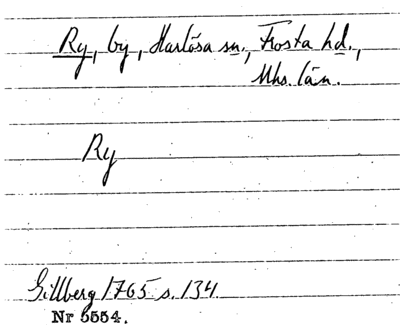 Ry, by, Harlösa sn., Frosta hd.,
Mhs. län.
Ry
Gillberg 1765 s. 134.
Nr 5554.